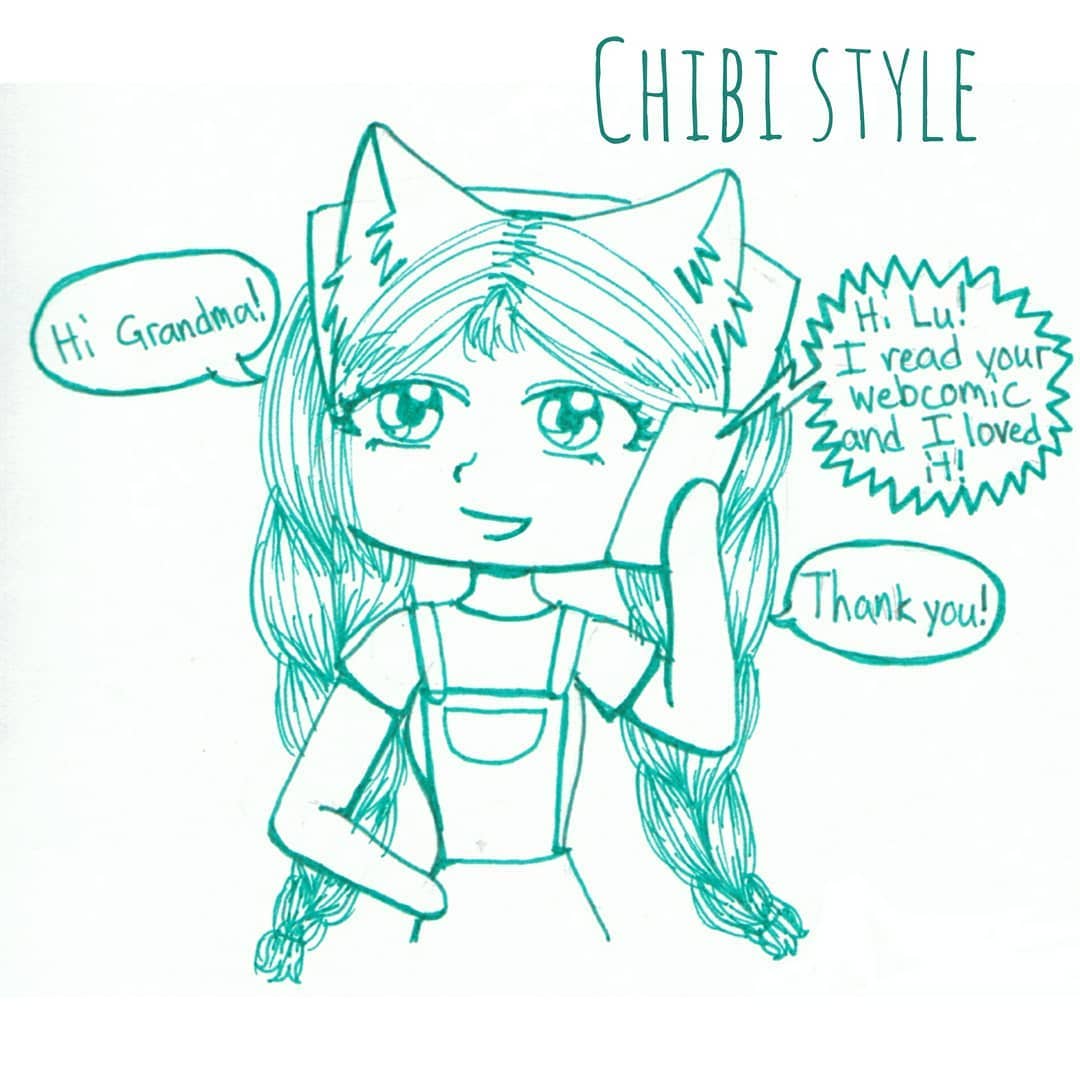 CHIBI STYLE
Hi Grandma!
Hi Lu!
I read your
webcomic
and I loved
it!
Thank you!